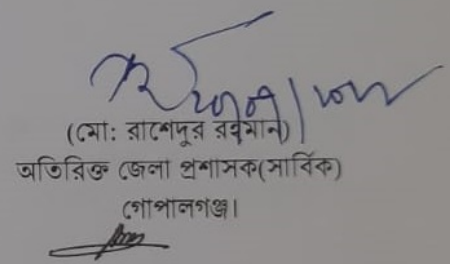 (মো: রাশেদুর রহমান)
অতিরিক্ত জেলা প্রশাসক(সার্বিক)
গোপালগঞ্জ।